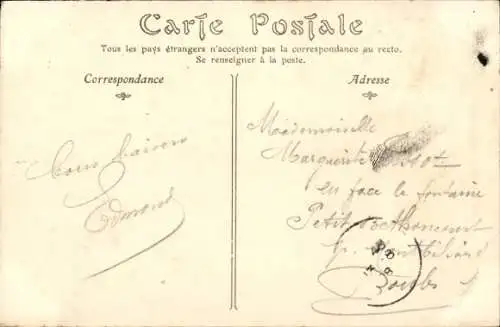 Carte Postale
Tous les pays étrangers n'acceptent pas la correspondance au recto.
Se renseigner à la poste.
Correspondance
Adresse
Bons baisers
Edmond
Mademoiselle
Marguerite
en face la fontaine
Petit Bethoncourt
Montbéliard
Doubs